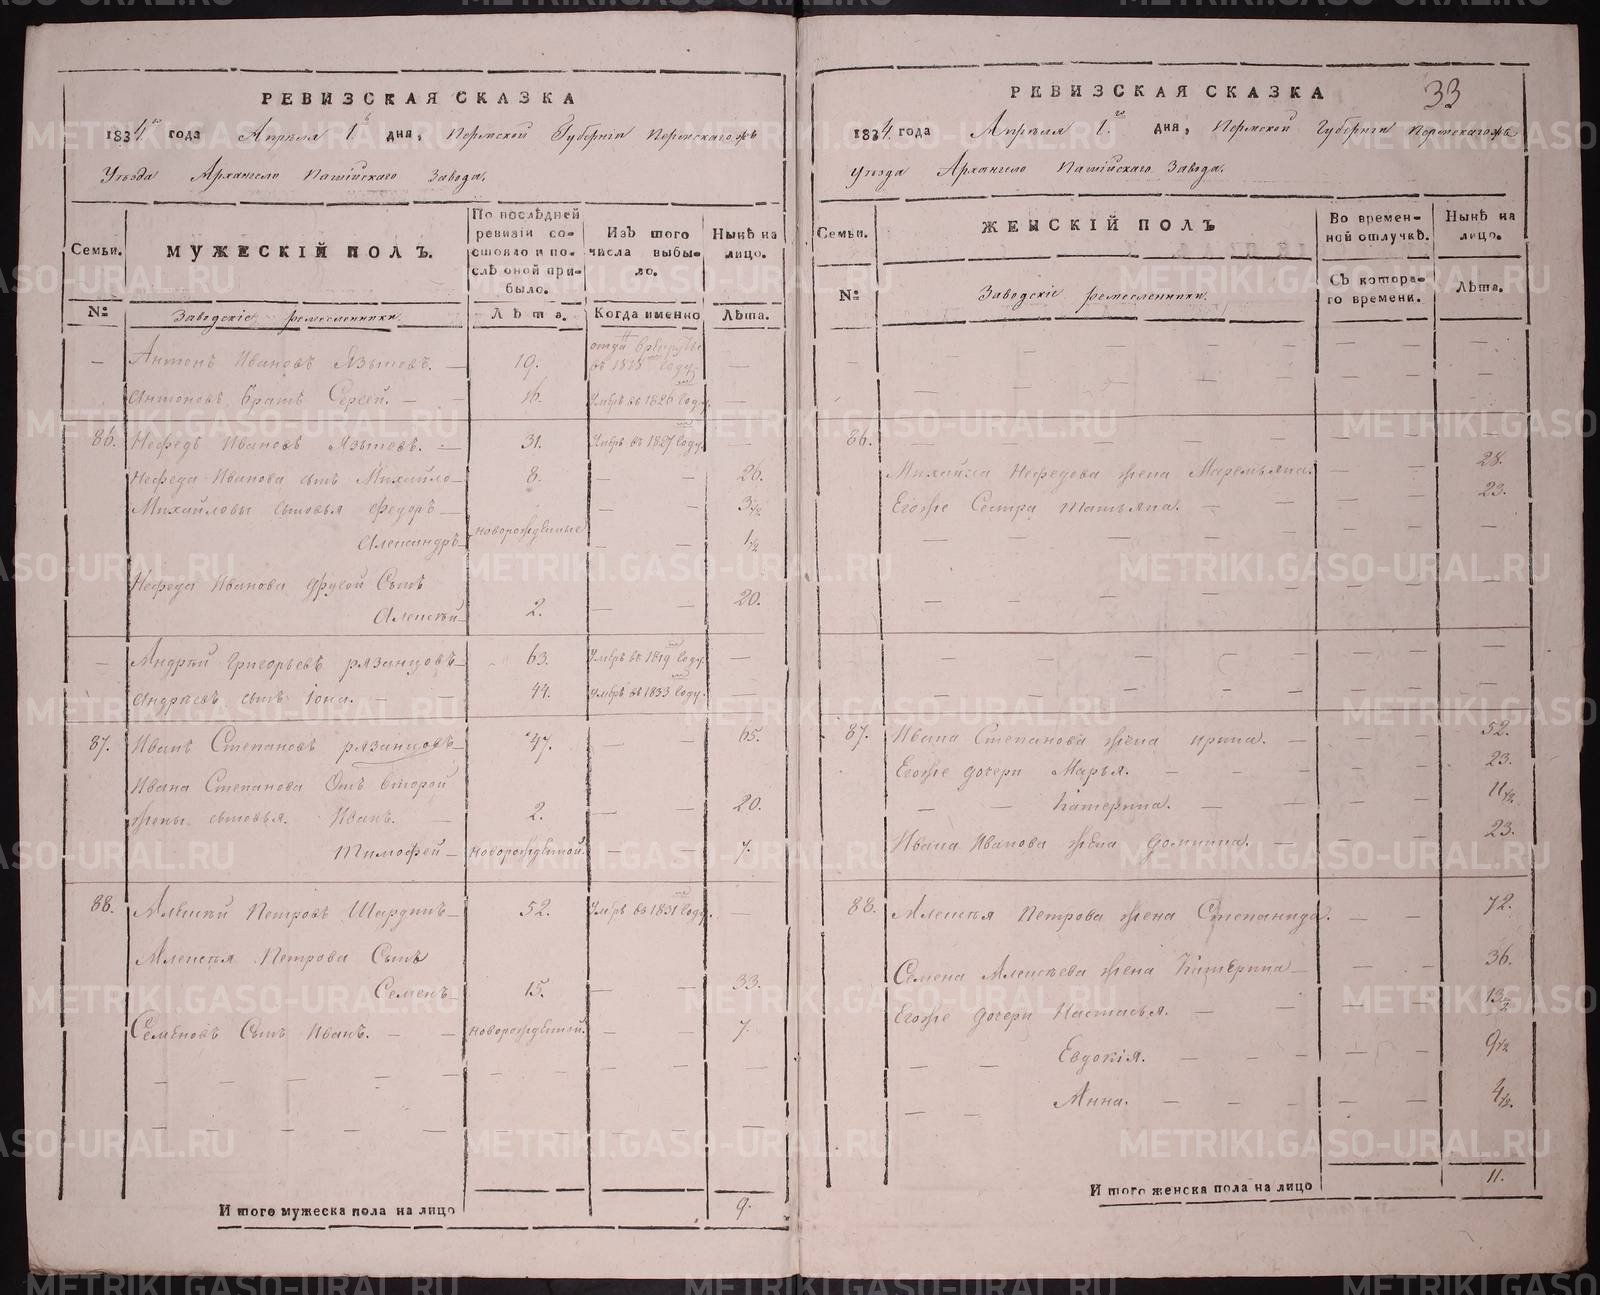 РЕВИЗСКАЯ СКАЗКА
1834го года Апреля 1 дня, Пермской Губернiи Пермскагожъ
Уезда Архангело Пашiйскаго Завода.
Семьи.
МУЖЕСКIЙ ПОЛЪ.
По послѣдней ревизiи состояло и послѣ оной прибыло.
Изъ того числа выбыло.
Нынѣ на лицо.
№
Заводскiе ремесленники.
Лѣта.
Когда именно
Лѣта.
— Антонъ Ивановъ Язытовъ. — 19. отданъ в рекруты въ 1818м году. —
Антоновъ братъ Сергей. — — 16. Умръ въ 1826м году. —
86. Нефедъ Ивановъ Язытовъ. — 31. Умръ въ 1827м году. —
Нефеда Иванова сынъ Михайло — 8. — — 26.
Михайловы сыновья Федоръ — — — 3 1/2
Александръ — новорожденные — — 1 1/2
Нефеда Иванова другой Сынъ
Алексѣй — 2. — — 20.
— Андрей Григорьевъ рязанцовъ — 63. Умръ въ 1819м году. —
Андреевъ сынъ Iона. — — 44. Умръ въ 1833м году. —
87. Иванъ Степановъ рязанцовъ — 47. — — 65.
Ивана Степанова Отъ второй
жены сыновья. Иванъ. — 2. — — 20.
Тимофей — новорожденной. — — 7.
88. Алексѣй Петровъ Шардинъ — 52. Умръ въ 1831м году. —
Алексѣя Петрова Сынъ
Семенъ — 15. — — 33.
Семеновъ Сынъ Иванъ. — — новорожденной. — — 7.
Итого мужеска пола на лицо 9.
33
РЕВИЗСКАЯ СКАЗКА
1834. года Апреля 1го дня, Пермской Губернiи Пермскагожъ
Уезда Архангело Пашiйскаго Завода.
Семьи.
ЖЕНСКIЙ ПОЛЪ
Во временной отлучкѣ.
Нынѣ на лицо.
№
Заводскiе ремесленники.
Съ котораго времени.
Лѣта.
86.
Михайла Нефедова жена Маремьяна. — — 28.
Егоже Сестра Татьяна. — — — 23.
87. Ивана Степанова жена Ирина. — — — 52.
Егоже дочери Марья. — — — 23.
— — Катерина. — — — 11 1/2.
Ивана Иванова жена Домнина. — — — 23.
88. Алексѣя Петрова жена Степанида. — — 72.
Семена Алексѣева жена Катерина — — — 36.
Егоже дочери Настасья. — — — 13 1/2
Евдокiя. — — — 9 1/2
Анна. — — — 4 1/2.
Итого женска пола на лицо 11.
METRIKI.GASO-URAL.RU